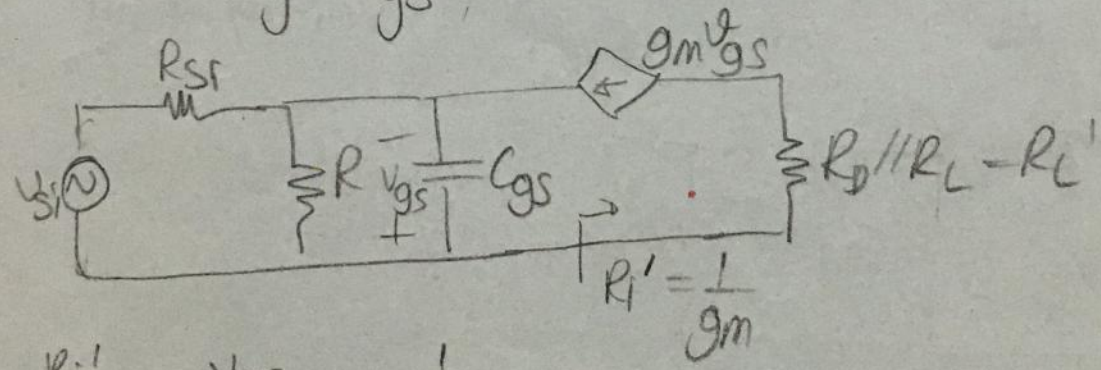 gmvgs
RSr
R
vgs
Cgs
RD//RL - RL'
Ri' = 1/gm